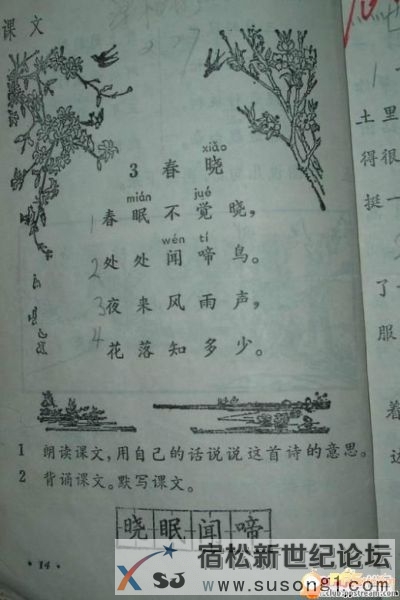 课文
xiǎo
3 春晓
mián jué
1 春眠不觉晓，
wén tí
2 处处闻啼鸟。
3 夜来风雨声，
4 花落知多少。
1 朗读课文，用自己的话说说这首诗的意思。
2 背诵课文。默写课文。
晓眠闻啼
·14·
土里
得很
挺一
了
服
着
宿松新世纪论坛
XSJ
www.susong1.com